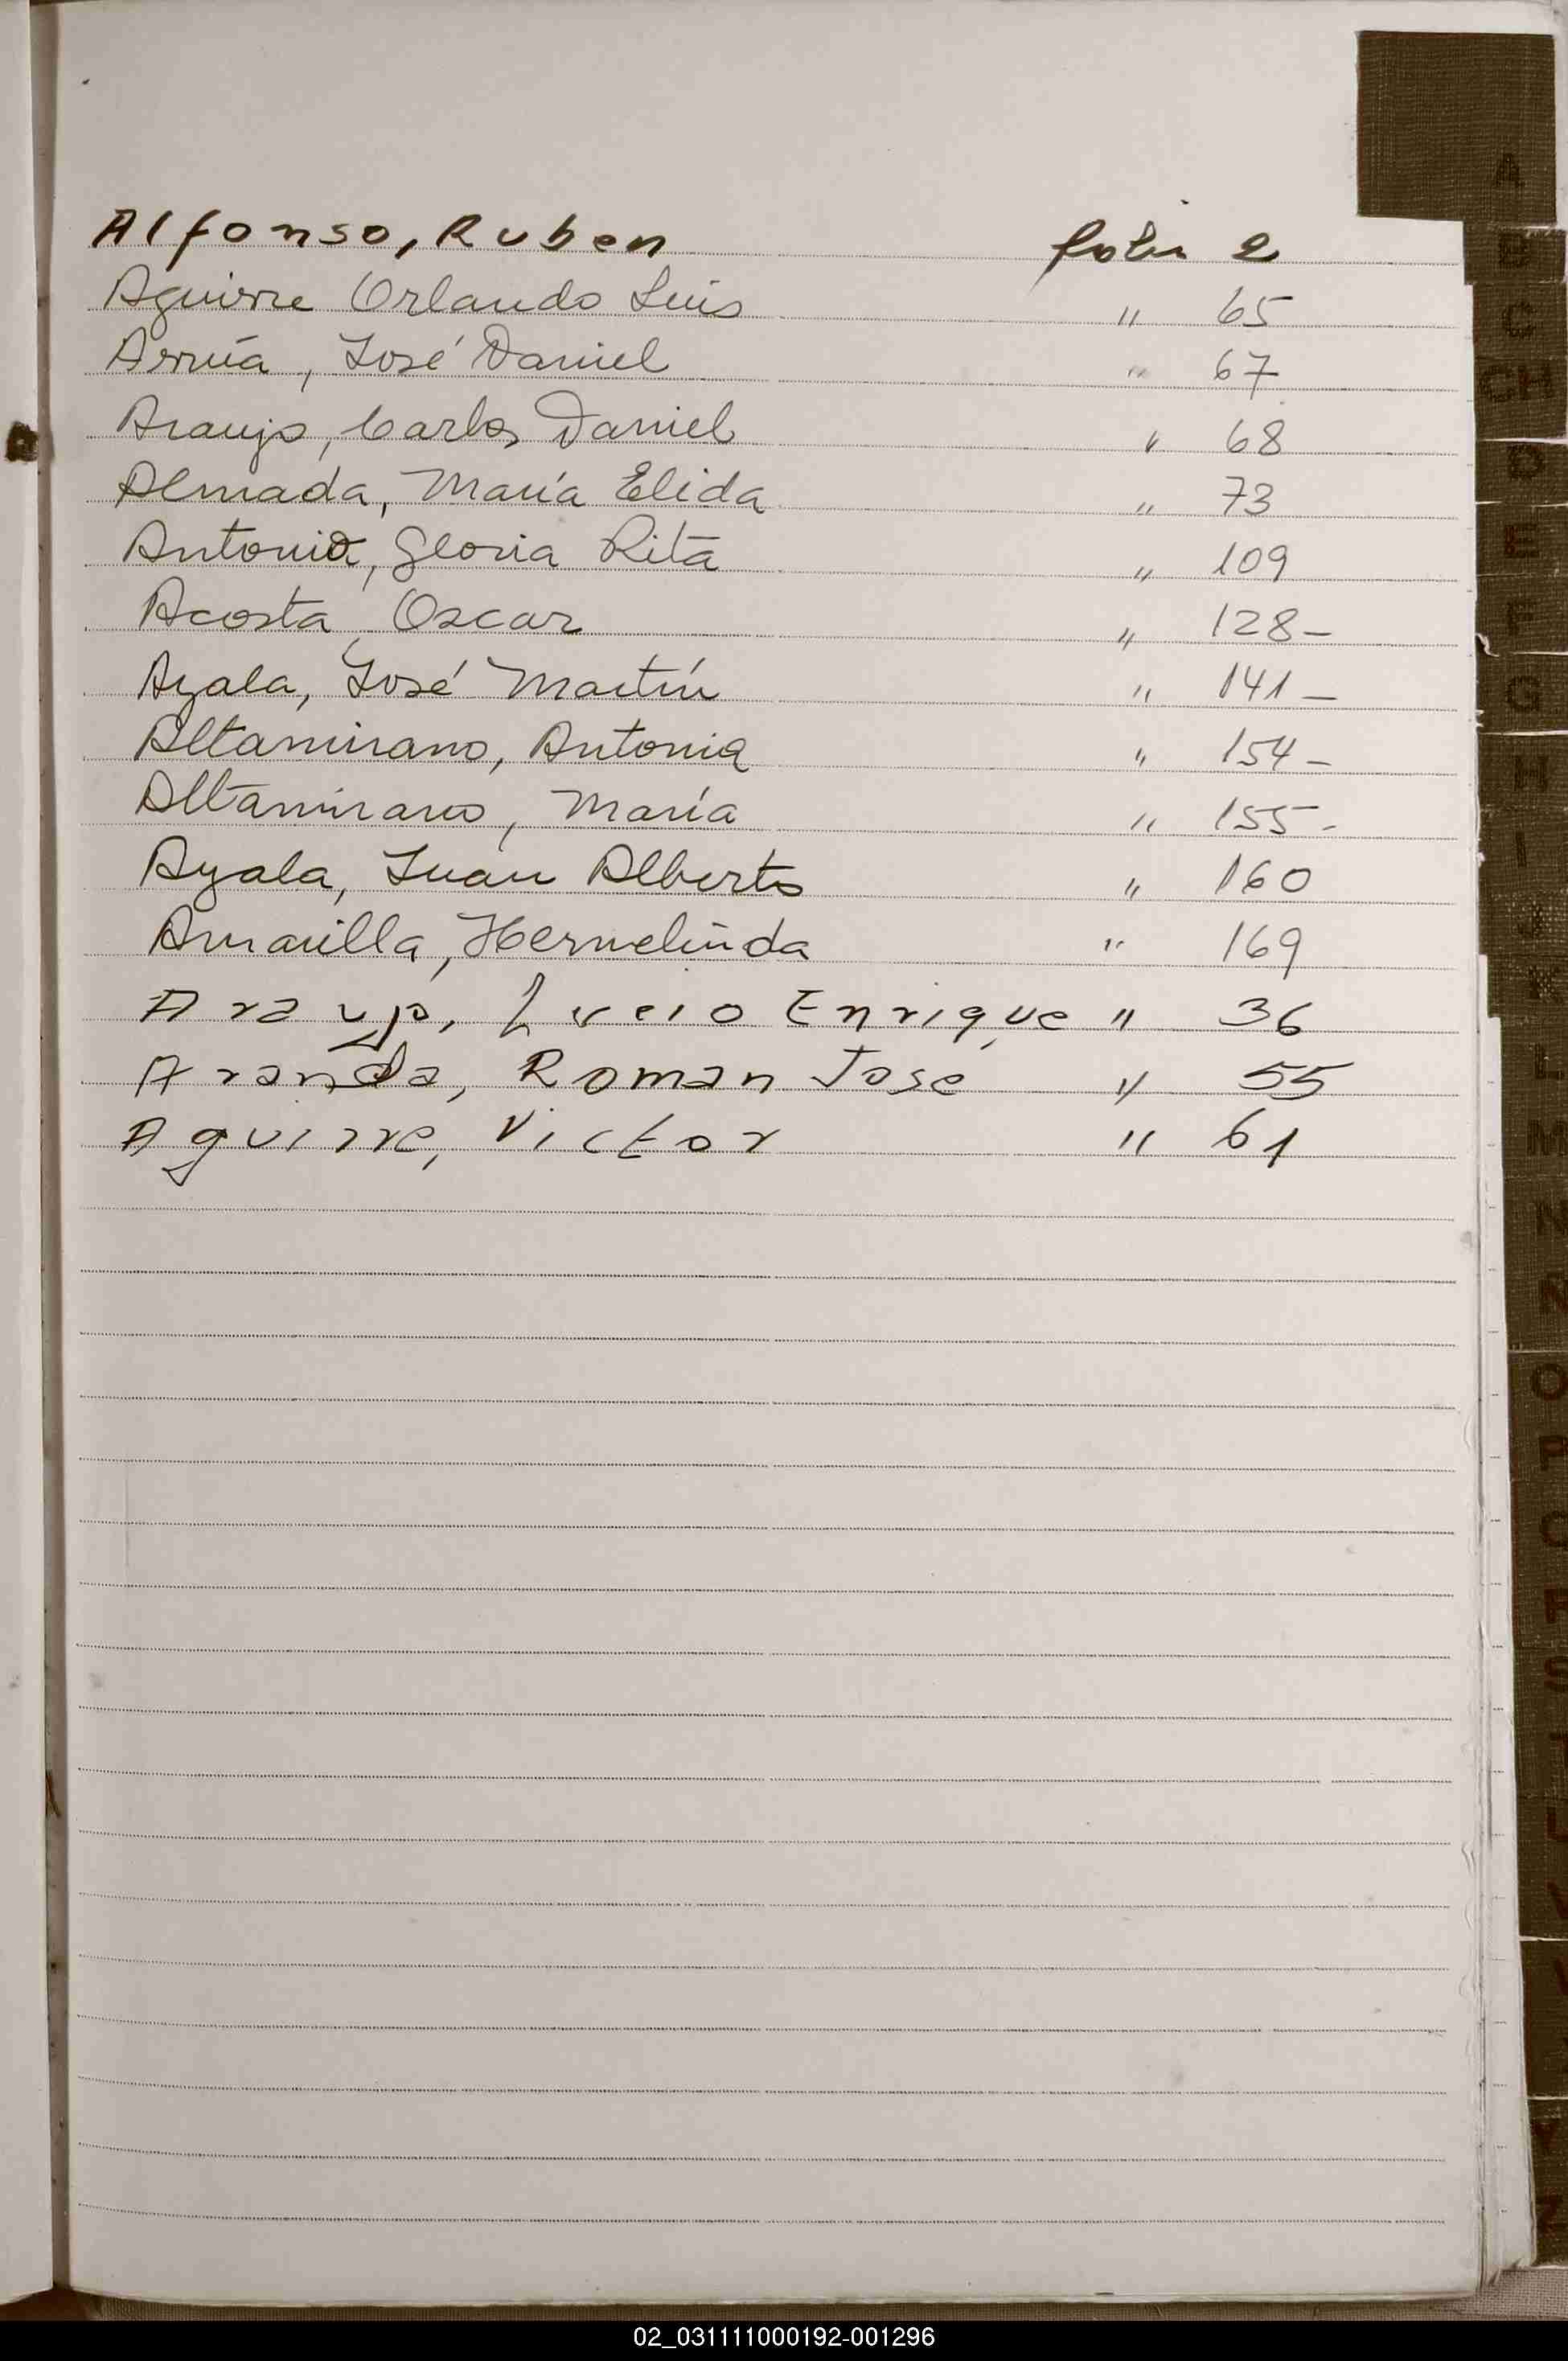 Alfonso, Ruben folio 2
Aguirre Orlando Luis " 65
Arrúa, José Daniel " 67
Araujo, Carlos Daniel " 68
Almada, María Elida " 73
Antonia, Gloria Rita " 109
Acosta, Oscar " 128-
Ayala, José Martín " 141-
Altamirano, Antonia " 154-
Altamirano, María " 155-
Ayala, Juan Alberto " 160
Amarilla, Hermelinda " 169
Araujo, Lucio Enrique " 36
Aranda, Roman José " 55
Aguirre, Victor " 61
A
B
C
CH
D
E
F
G
H
I
J
K
L
M
N
Ñ
O
P
Q
R
S
T
02_031111000192-001296